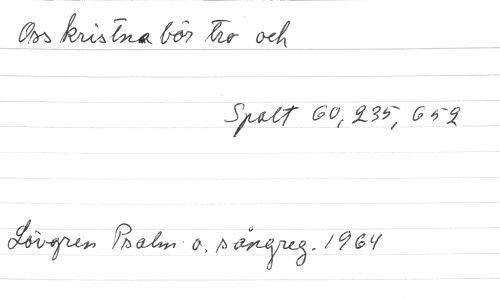 Oss kristna bör tro och
Spalt 60, 235, 652
Lövgren Psalm o. sångreg. 1964